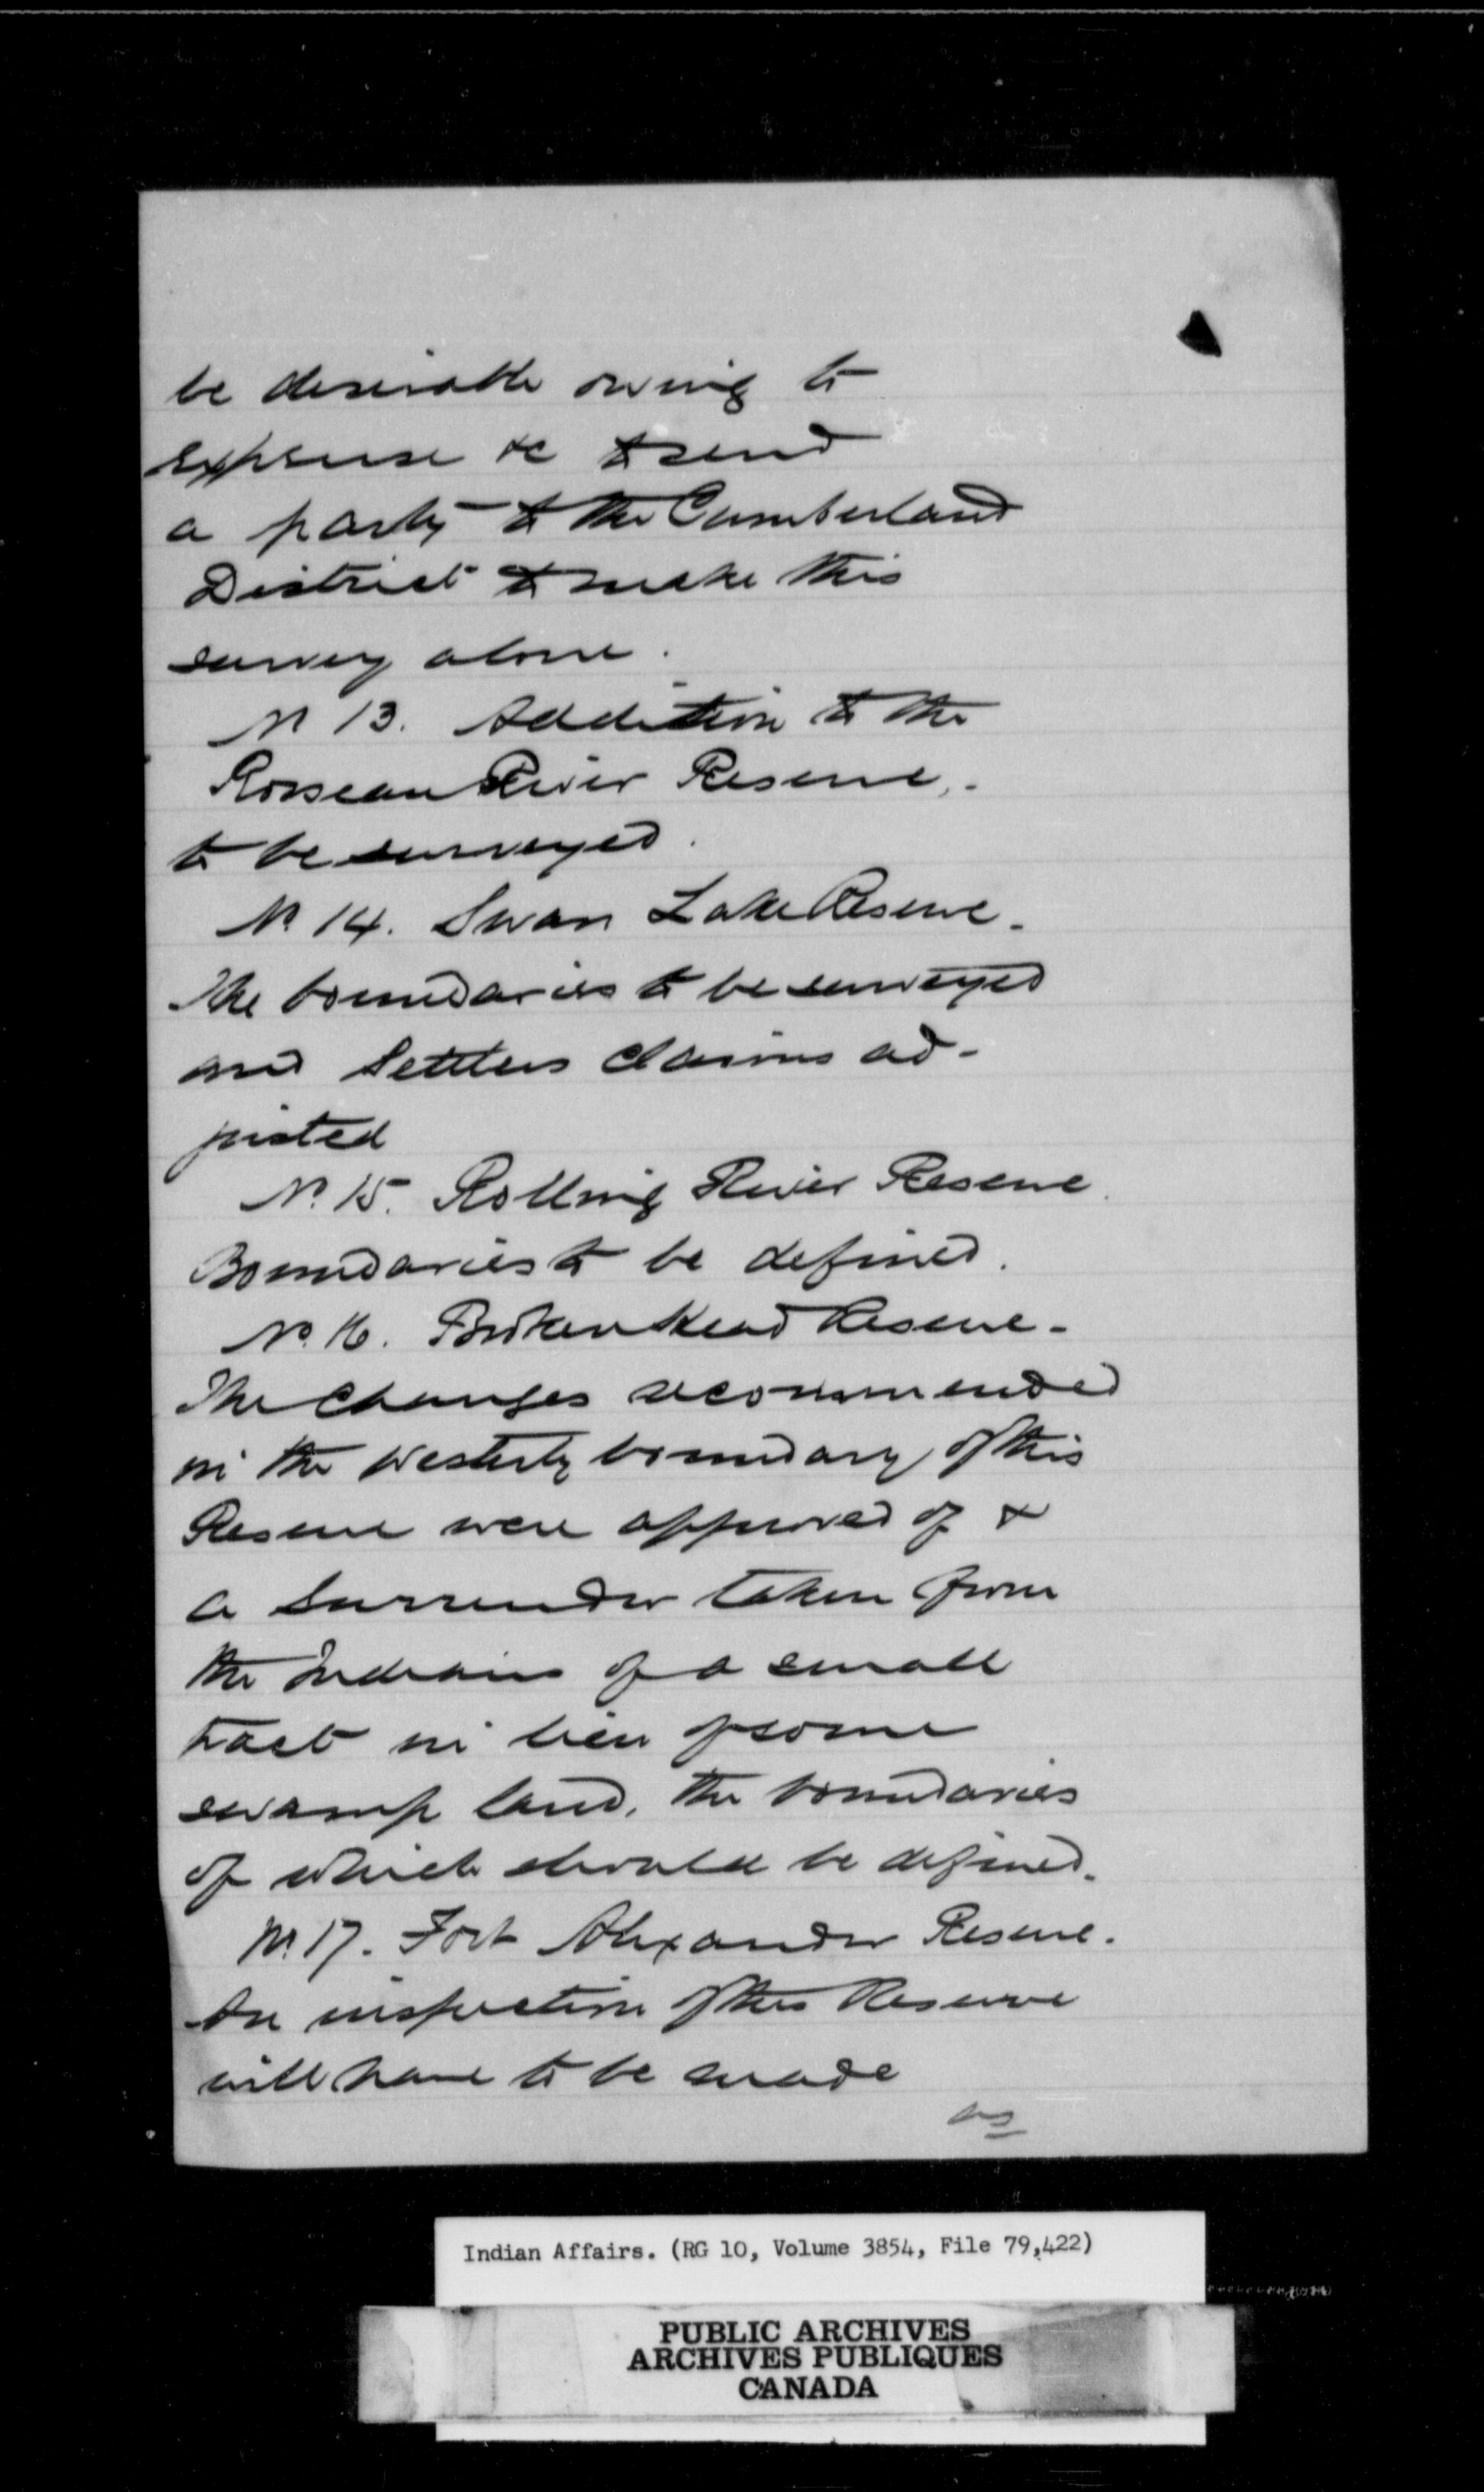 be desirable owing to
expense &c to send
a party to the Cumberland
District to make this
survey alone.
No 13. Addition to the
Rosseau River Reserve,.
to be surveyed.
No 14. Swan Lake Reserve.
The boundaries to be surveyed
and Settlers claims ad-
justed
No. 15. Rolling River Reserve.
Boundaries to be defined.
No. 16. Broken Head Reserve-
The changes recommended
in the Westerly boundary of this
Reserve were approved of &
a Surrender taken from
the Indians of a small
tract in lieu of some
swamp land, the boundaries
of which should be defined.
No 17. Fort Alexander Reserve.
An inspection of this Reserve
will have to be made
as
Indian Affairs. (RG 10, Volume 3854, File 79,422)
PUBLIC ARCHIVES
ARCHIVES PUBLIQUES
CANADA